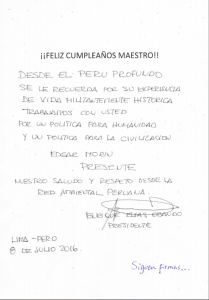 ¡¡FELIZ CUMPLEAÑOS MAESTRO!!
DESDE EL PERU PROFUNDO
SE LE RECUERDA POR SU EXPERIENCIA
DE VIDA MILITANTEMENTE HISTORICA
TRABAJAMOS CON USTED
POR UN POLITICA PARA HUMANIDAD
Y UN POLITICA PARA LA CIVILIZACION
EDGAR MORIN
PRESENTE
NUESTRO SALUDO Y RESPETO DESDE LA
RED AMBIENTAL PERUANA.
ENRIQUE
PRESIDENTE
LIMA - PERU
8 DE JULIO 2016.
Siguen firmas...